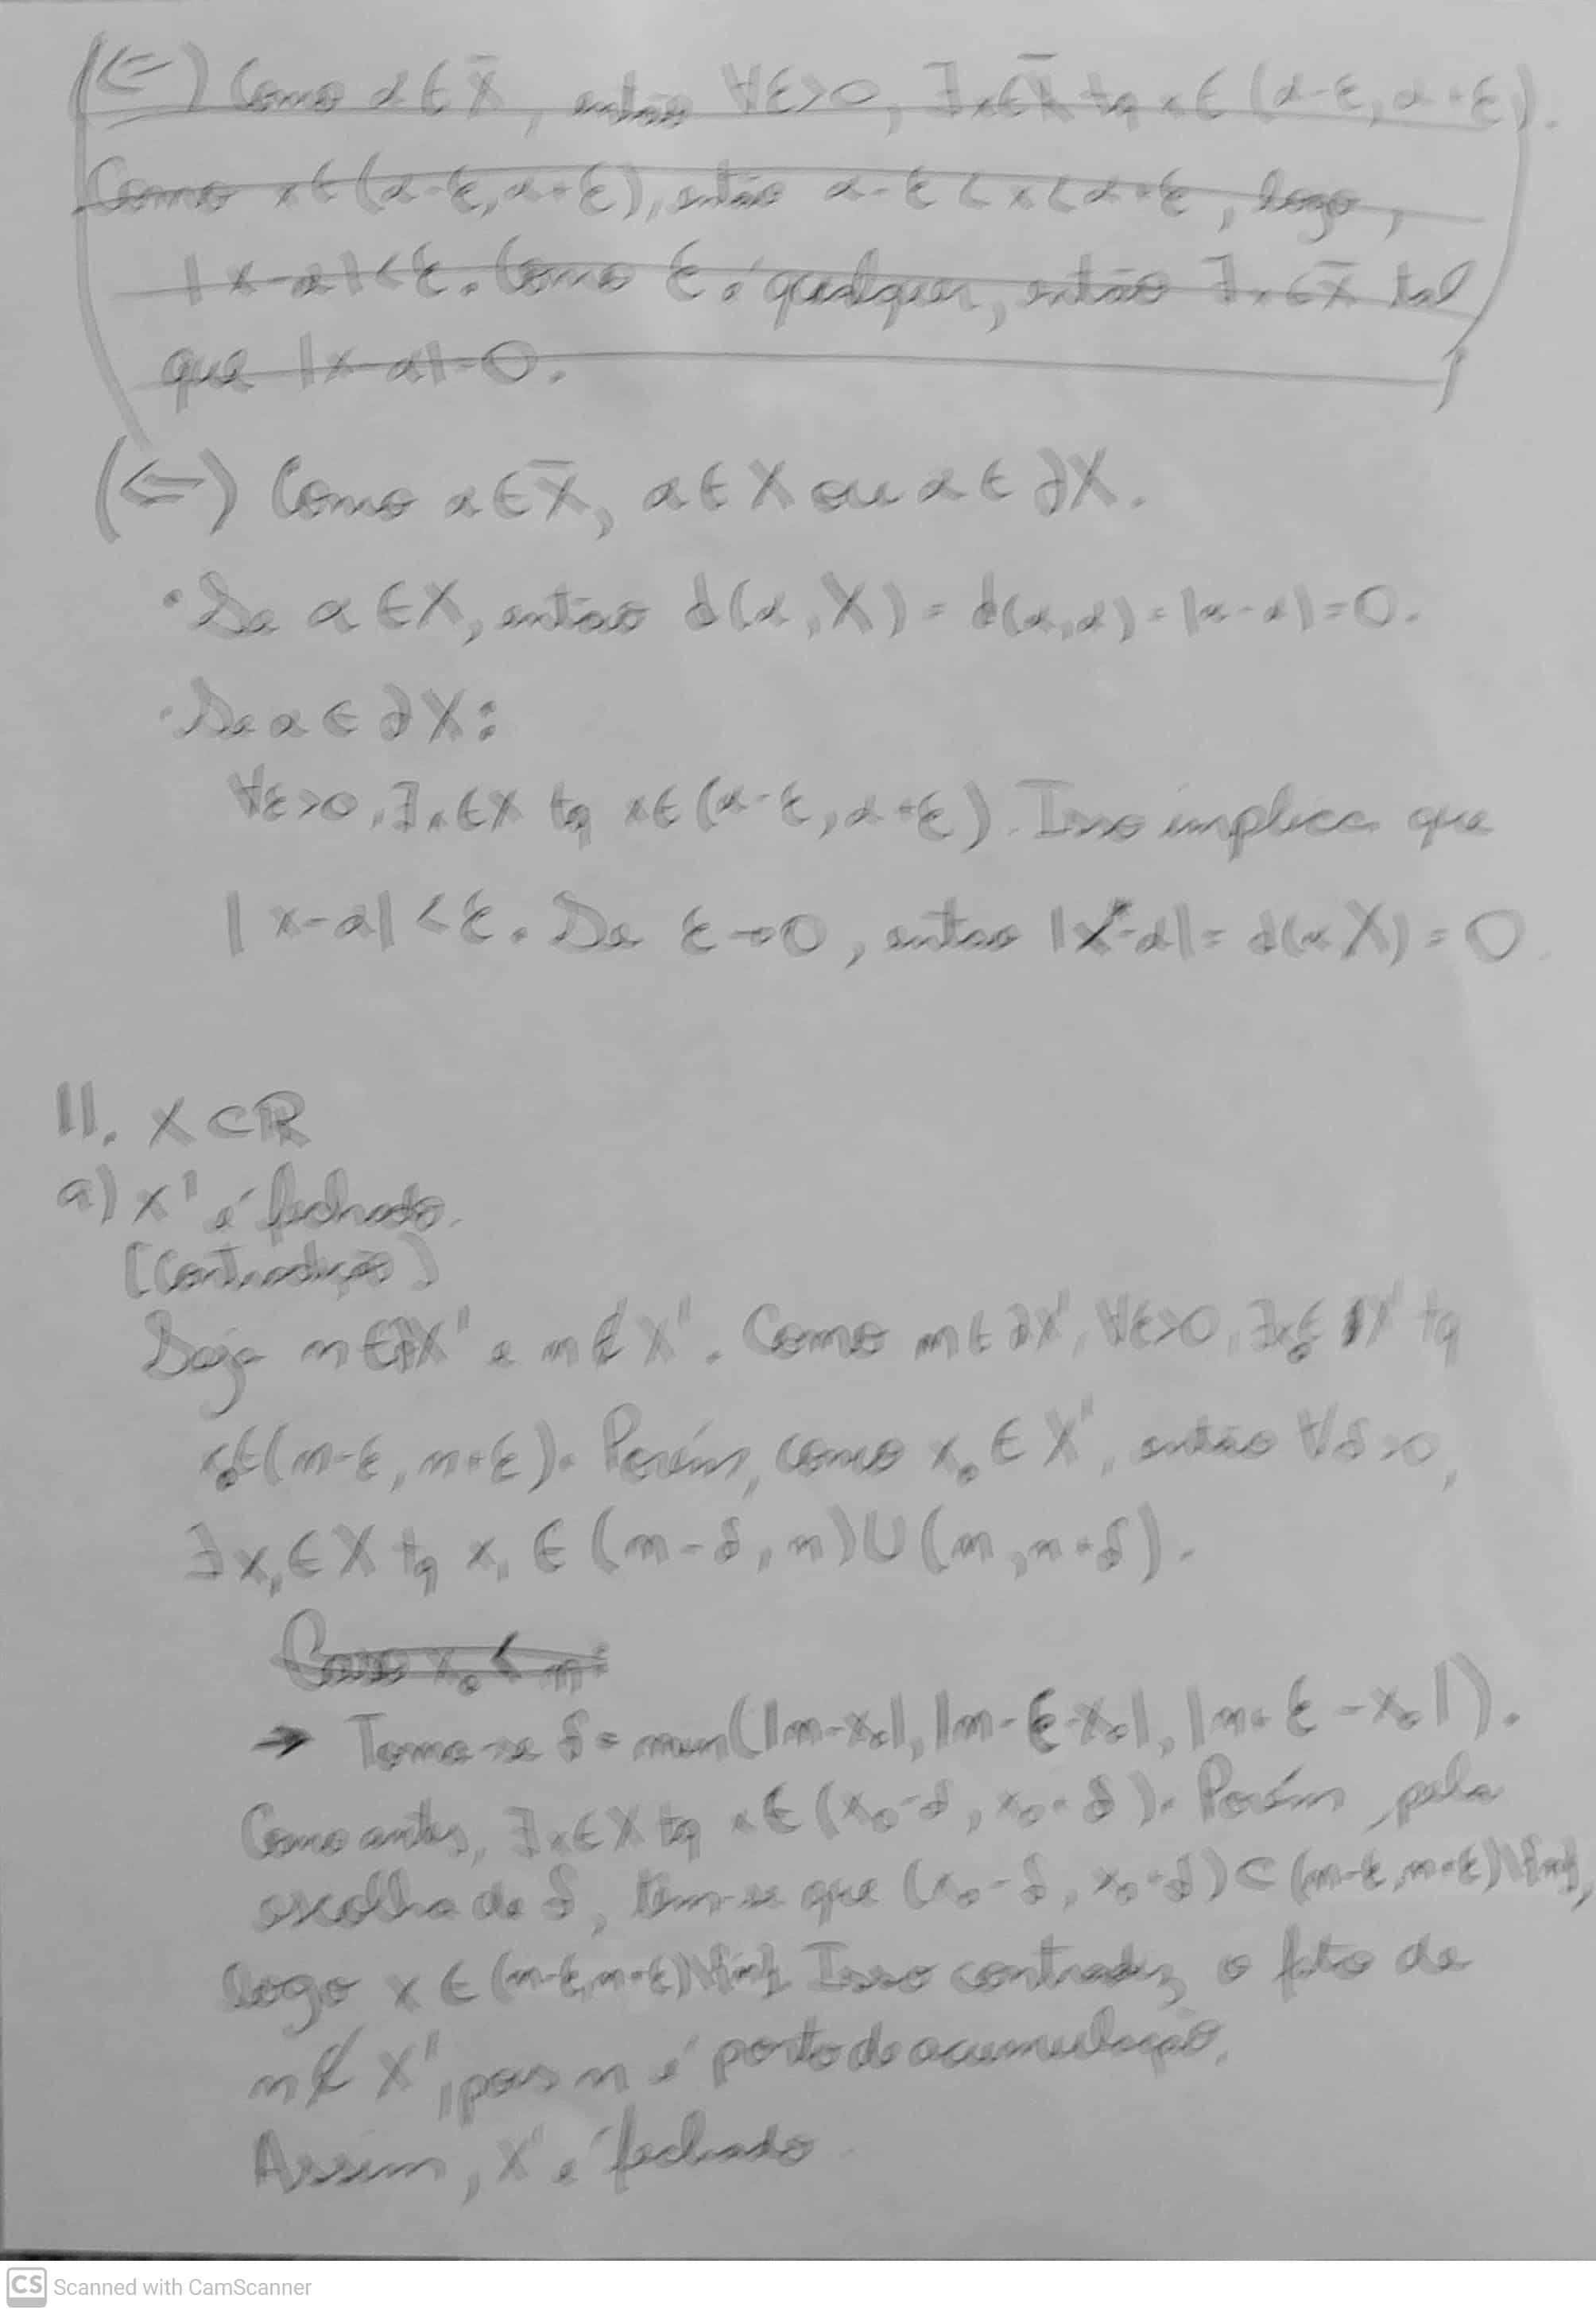 (⇐) Como a ∈ X̄, então ∀ε>0, ∃x∈X̄ tq x∈(a-ε, a+ε).
Como x∈(a-ε, a+ε), então a-ε<x<a+ε, logo,
|x-a|<ε. Como ε é qualquer, então ∃x∈X̄ tal
que |x-a|=0.
(⇐) Como a∈X̄, a∈X ou a∈∂X.
• Se a∈X, então d(a,X) = d(a,a) = |a-a| = 0.
• Se a∈∂X:
∀ε>0, ∃x∈X tq x∈(a-ε, a+ε). Isso implica que
|x-a|<ε. Se ε→0, então |x-a| = d(a X) = 0
11. X⊂R
a) X' é fechado.
[Contradição]
Seja n∈∂X' e n∉X'. Como n∈∂X', ∀ε>0, ∃x₀∈X' tq
x₀∈(n-ε, n+ε). Porém, como x₀∈X', então ∀δ>0,
∃x₁∈X tq x₁∈(n-δ, n)∪(n, n+δ).
Caso x₀<n:
→ Toma-se δ = min(|n-x₀|, |n-ε-x₀|, |n+ε-x₀|).
Como antes, ∃x∈X tq x∈(x₀-δ, x₀+δ). Porém, pela
escolha de δ, tem-se que (x₀-δ, x₀+δ)⊂(n-ε, n+ε)\{n},
logo x∈(n-ε, n+ε)\{n}. Isso contradiz o fato de
n∉X', pois n é ponto de acumulação.
Assim, X' é fechado.
CS Scanned with CamScanner